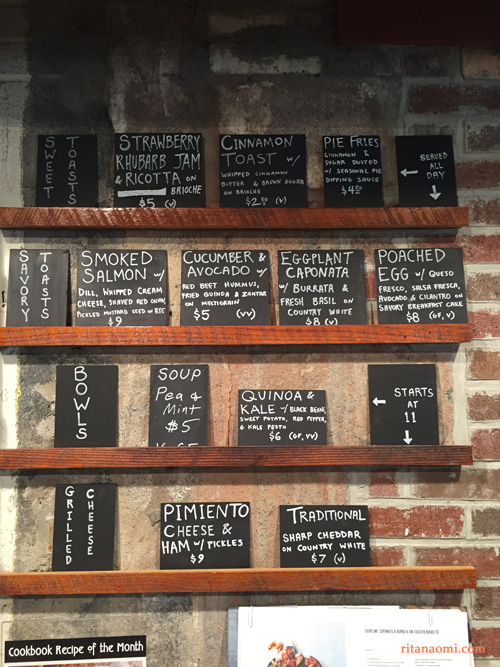 SWEET
TOASTS
STRAWBERRY
RHUBARB JAM
& RICOTTA ON
BRIOCHE
$5 (V)
CINNAMON
TOAST W/
WHIPPED CINNAMON
BUTTER & BROWN SUGAR
ON BRIOCHE
$2.50 (V)
PIE FRIES
CINNAMON &
SUGAR DUSTED
W/ SEASONAL PIE
DIPPING SAUCE
$4.50
SERVED
ALL
DAY
SAVORY
TOASTS
SMOKED
SALMON W/
DILL, WHIPPED CREAM
CHEESE, SHAVED RED ONION,
PICKLED MUSTARD SEED ON RYE
$9
CUCUMBER &
AVOCADO W/
RED BEET HUMMUS,
FRIED QUINOA & ZAATAR
ON MULTIGRAIN
$5 (VV)
EGGPLANT
CAPONATA
W/ BURRATA &
FRESH BASIL ON
COUNTRY WHITE
$8 (V)
POACHED
EGG W/ QUESO
FRESCO, SALSA FRESCA,
AVOCADO & CILANTRO ON
SAVORY BREAKFAST CAKE
$8 (GF, V)
BOWLS
SOUP
Pea &
Mint
$5
QUINOA &
KALE W/ BLACK BEAN,
SWEET POTATO, RED PEPPER,
& KALE PESTO
$6 (GF, VV)
STARTS
AT
11
GRILLED
CHEESE
PIMIENTO
CHEESE &
HAM W/ PICKLES
$9
TRADITIONAL
SHARP CHEDDAR
ON COUNTRY WHITE
$7 (V)
Cookbook Recipe of the Month
EGGPLANT CAPONATA & BURRATA ON TOASTED BAGUETTE
ritanaomi.com